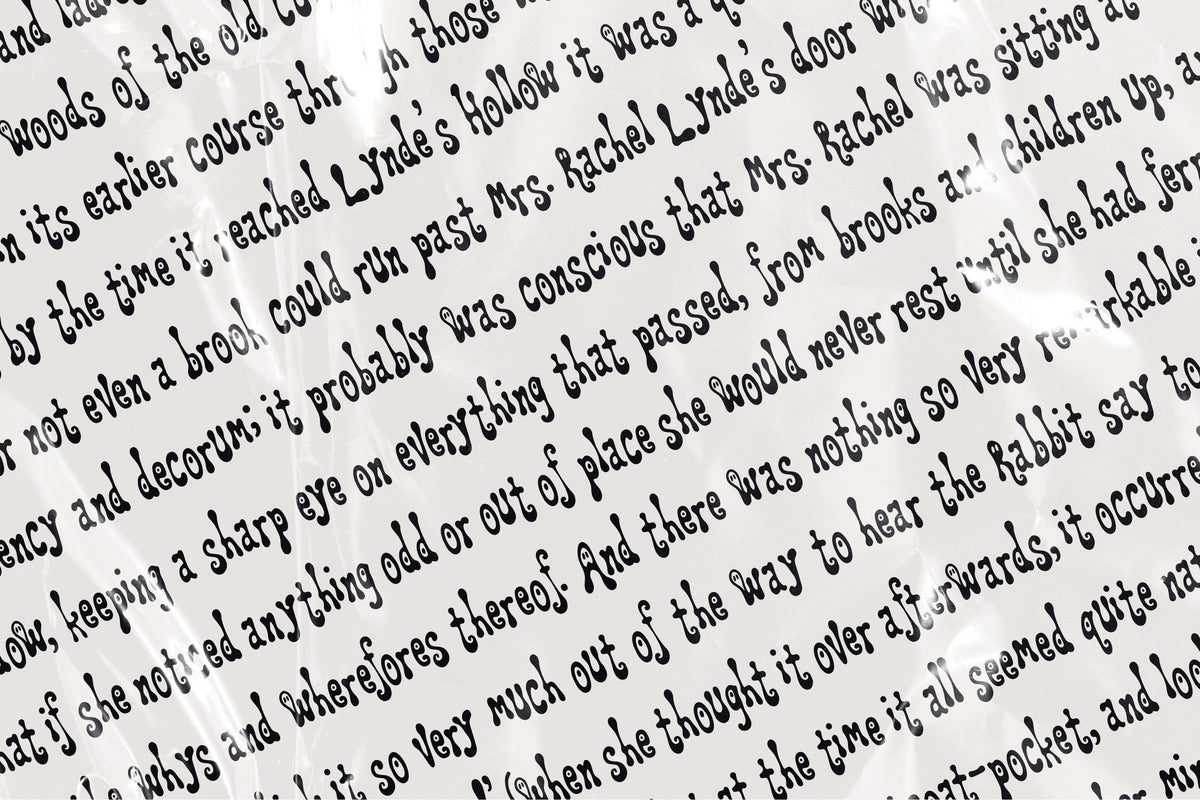 and
woods of the old
its earlier course through those
by the time it reached Lynde's Hollow it was a
or not even a brook could run past Mrs. Rachel Lynde's door
ency and decorum; it probably was conscious that Mrs. Rachel was sitting at
keeping a sharp eye on everything that passed, from brooks and children up,
hat if she noticed anything odd or out of place she would never rest until she had ferr
whys and wherefores thereof. And there was nothing so very remarkable
it so very much out of the way to hear the Rabbit say to
!' (when she thought it over afterwards, it occurre
the time it all seemed quite nat
oat-pocket, and loo